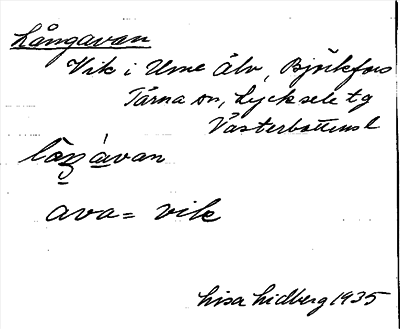 Långavan
Vik i Ume Älv, Björkfors
Tärna sn, Lycksele tg
Västerbottens l
ava = vik
Lisa Lidberg 1935